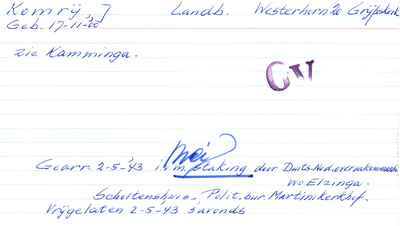 Komrÿ J Landb. Westerhorn 20 Grÿpskerk
Geb. 17-11-'00
zie Kamminga.
GV
Mei
Gearr. 2-5-'43 i.v.m. staking door Duits-Ned. overvalcommando
wo Elzinga.
Scholtenshuis, Polit. bur. Martinikerkhof.
Vrÿgelaten 2-5-'43 's avonds